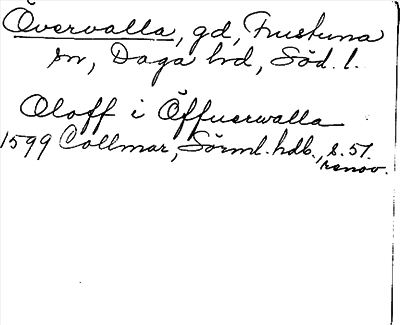 Övervalla, gd, Frustuna
sn, Daga hd, Söd. l.
Oloff i Öffuerwalla
1599 Collmar, Sörml. hdb., s. 51.
renov.